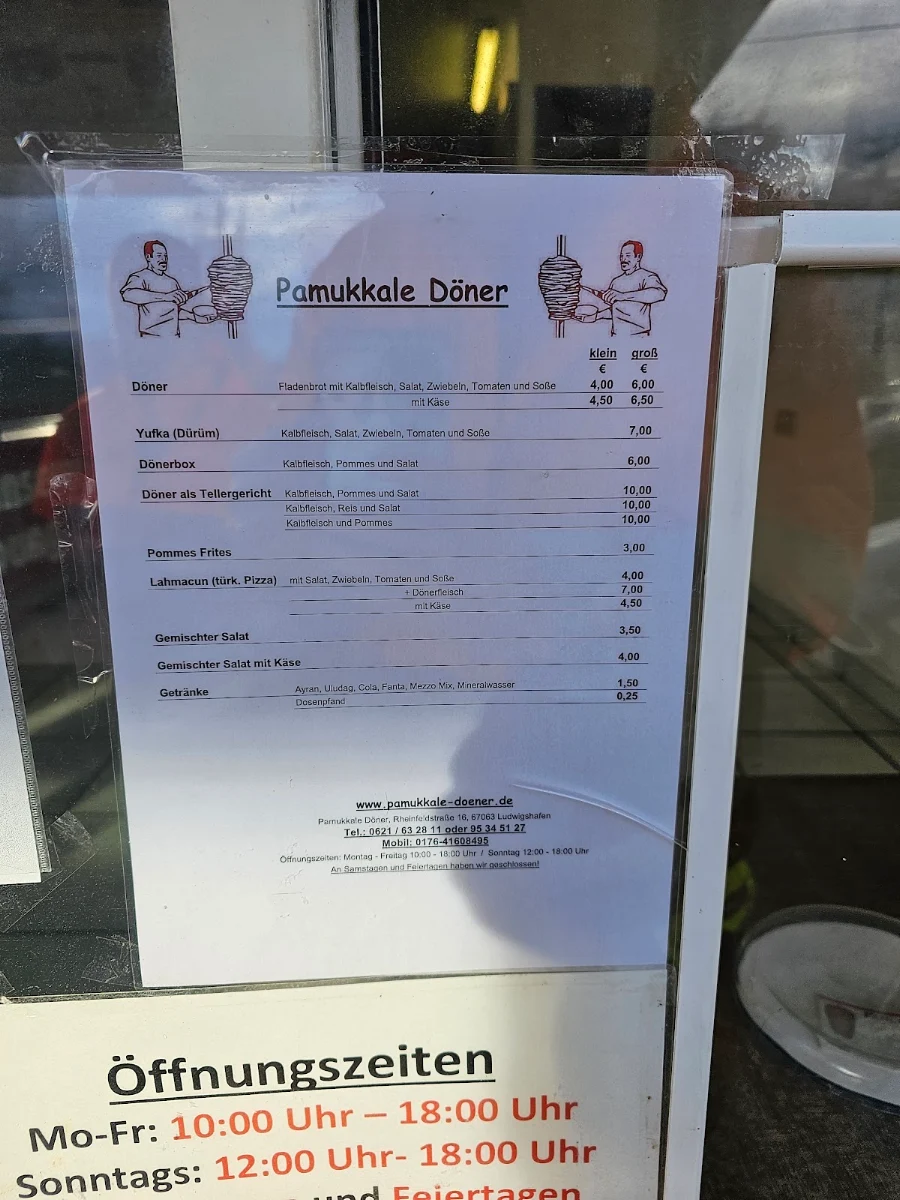 Pamukkale Döner
klein groß
€ €
Döner Fladenbrot mit Kalbfleisch, Salat, Zwiebeln, Tomaten und Soße 4,00 6,00
mit Käse 4,50 6,50
Yufka (Dürüm) Kalbfleisch, Salat, Zwiebeln, Tomaten und Soße 7,00
Dönerbox Kalbfleisch, Pommes und Salat 6,00
Döner als Tellergericht Kalbfleisch, Pommes und Salat 10,00
Kalbfleisch, Reis und Salat 10,00
Kalbfleisch und Pommes 10,00
Pommes Frites 3,00
Lahmacun (türk. Pizza) mit Salat, Zwiebeln, Tomaten und Soße 4,00
+ Dönerfleisch 7,00
mit Käse 4,50
Gemischter Salat 3,50
Gemischter Salat mit Käse 4,00
Getränke Ayran, Uludag, Cola, Fanta, Mezzo Mix, Mineralwasser 1,50
Dosenpfand 0,25
www.pamukkale-doener.de
Pamukkale Döner, Rheinfeldstraße 16, 67063 Ludwigshafen
Tel.: 0621 / 63 28 11 oder 95 34 51 27
Mobil: 0176-41608495
Öffnungszeiten: Montag - Freitag 10:00 - 18:00 Uhr / Sonntag 12:00 - 18:00 Uhr
An Samstagen und Feiertagen haben wir geschlossen!
Öffnungszeiten
Mo-Fr: 10:00 Uhr – 18:00 Uhr
Sonntags: 12:00 Uhr- 18:00 Uhr
und Feiertagen